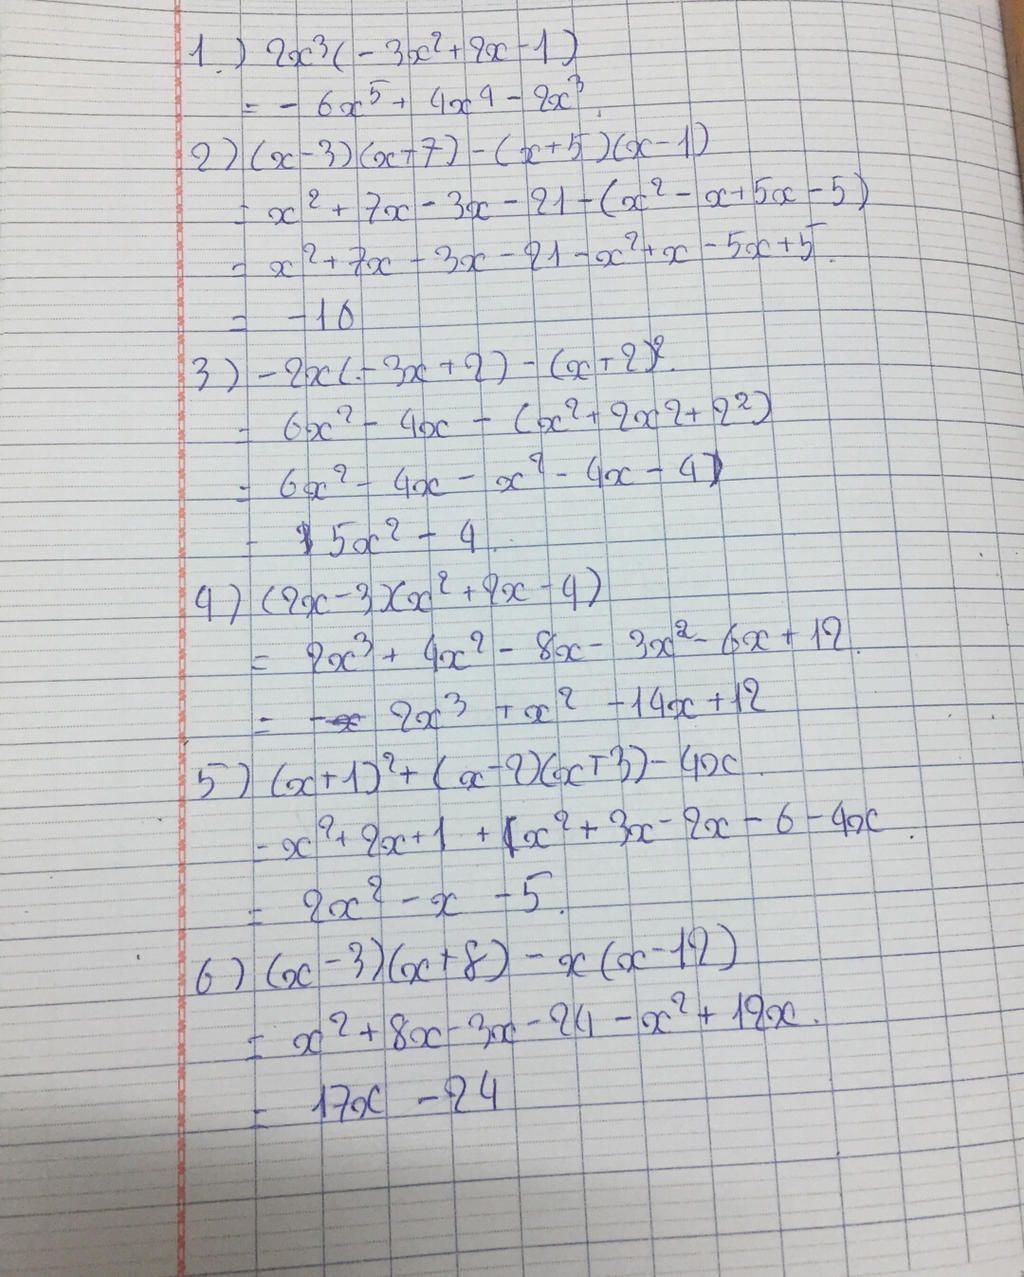 1.) 2x³(-3x²+2x-1)
= -6x⁵+4x⁴-2x³.
2) (x-3)(x+7)-(x+5)(x-1)
= x²+7x-3x-21-(x²-x+5x-5)
= x²+7x-3x-21-x²+x-5x+5.
= -16
3) -2x(-3x+2)-(x+2)².
= 6x²-4x-(x²+2x2+2²)
= 6x²-4x-x²-4x-4
= 5x²-4.
4) (2x-3)(x²+2x-4)
= 2x³+4x²-8x-3x²-6x+12.
= 2x³+x²-14x+12
5) (x+1)²+(x-2)(x+3)-4x.
= x²+2x+1+x²+3x-2x-6-4x.
= 2x²-x-5.
6) (x-3)(x+8)-x(x-12)
= x²+8x-3x-24-x²+12x.
= 17x-24